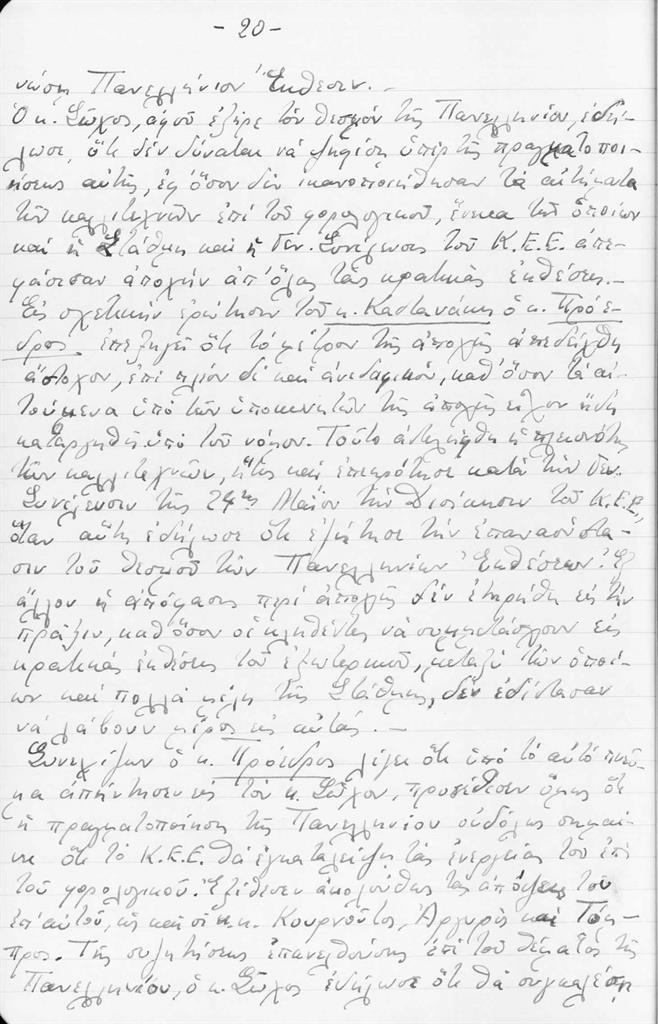 - 20 -
νώσῃ Πανελλήνιον Ἔκθεσιν. -
Ὁ κ. Σῶχος, ἀφοῦ ἐξῆρε τόν θεσμόν τῆς Πανελληνίου, ἐδή-
λωσε, ὅτι δέν δύναται νά ψηφίσῃ ὑπέρ τῆς πραγματοποι-
ήσεως αὐτῆς, ἐφ' ὅσον δέν ἱκανοποιήθησαν τά αἰτήματα
τῶν καλλιτεχνῶν ἐπί τοῦ φορολογικοῦ, ἕνεκα τῶν ὁποίων
καί ἡ Στάθμη καί ἡ Γεν. Συνέλευσις τοῦ Κ.Ε.Ε. ἀπε-
φάσισαν ἀποχήν ἀπ' ὅλας τάς κρατικάς ἐκθέσεις. -
Εἰς σχετικήν ἐρώτησιν τοῦ κ. Καστανάκη ὁ κ. Πρόε-
δρος ἐπεξηγεῖ ὅτι τό μέτρον τῆς ἀποχῆς ἀπεδείχθη
ἄστοχον, ἐπί πλέον δέ καί ἀνεδαφικόν, καθ' ὅσον τά αἰ-
τούμενα ὑπό τῶν ὑποκινητῶν τῆς ἀποχῆς εἶχον ἤδη
καταργηθῆ ὑπό τοῦ νόμου. Τοῦτο ἀντελήφθη ἡ πλειονότης
τῶν καλλιτεχνῶν, ἥτις καί ἐπεκρότησε κατά τήν Γεν.
Συνέλευσιν τῆς 24ης Μαΐου τήν Διοίκησιν τοῦ Κ.Ε.Ε.,
ὅταν αὕτη ἐδήλωσε ὅτι ἐζήτησε τήν ἐπανασύστα-
σιν τοῦ θεσμοῦ τῶν Πανελληνίων Ἐκθέσεων. Ἐξ
ἄλλου ἡ ἀπόφασις περί ἀποχῆς δέν ἐτηρήθη εἰς τήν
πρᾶξιν, καθ' ὅσον οἱ κληθέντες νά συμμετάσχουν εἰς
κρατικάς ἐκθέσεις τοῦ ἐξωτερικοῦ, μεταξύ τῶν ὁποί-
ων καί πολλά μέλη τῆς Στάθμης, δέν ἐδίστασαν
νά λάβουν μέρος εἰς αὐτάς. -
Συνεχίζων ὁ κ. Πρόεδρος λέγει ὅτι ὑπό τό αὐτό πνεῦ-
μα ἀπήντησεν εἰς τόν κ. Σῶχον, προσέθεσεν ὅμως ὅτι
ἡ πραγματοποίησις τῆς Πανελληνίου οὐδόλως σημαί-
νει ὅτι τό Κ.Ε.Ε. θά ἐγκαταλείψῃ τάς ἐνεργείας του ἐπί
τοῦ φορολογικοῦ. Ἐξέθεσεν ἀκολούθως τάς ἀπόψεις του
ἐπ' αὐτοῦ, ὡς καί οἱ κ.κ. Κουρνοῦτος, Ἀργυρός καί Τόμ-
προς. Τῆς συζητήσεως ἐπανελθούσης ἐπί τοῦ θέματος τῆς
Πανελληνίου, ὁ κ. Σῶχος ἐδήλωσε ὅτι θά συγκαλέσῃ